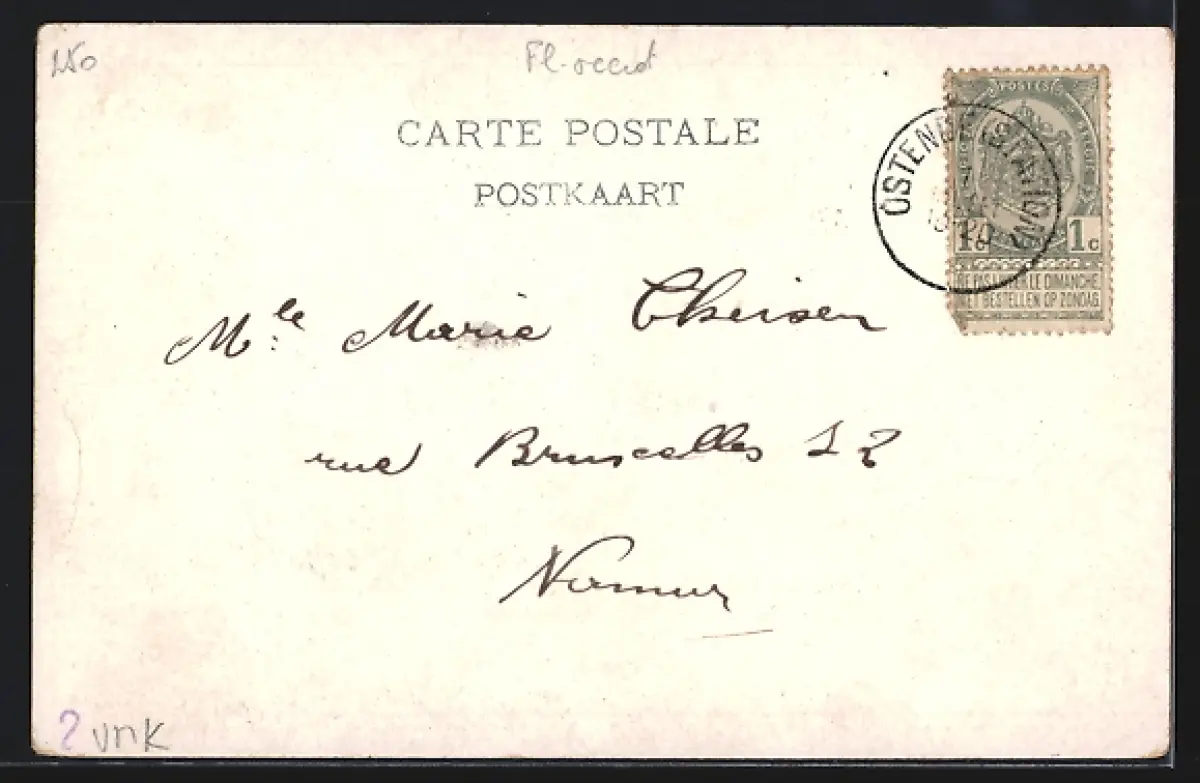 150
Fl-occid
CARTE POSTALE
POSTKAART
POSTES
OSTENDE (STATION)
1c 1c
NE PAS LIVRER LE DIMANCHE
NIET BESTELLEN OP ZONDAG
Mle: Marie Theisen
rue Bruxelles 12
Namur
? vnk